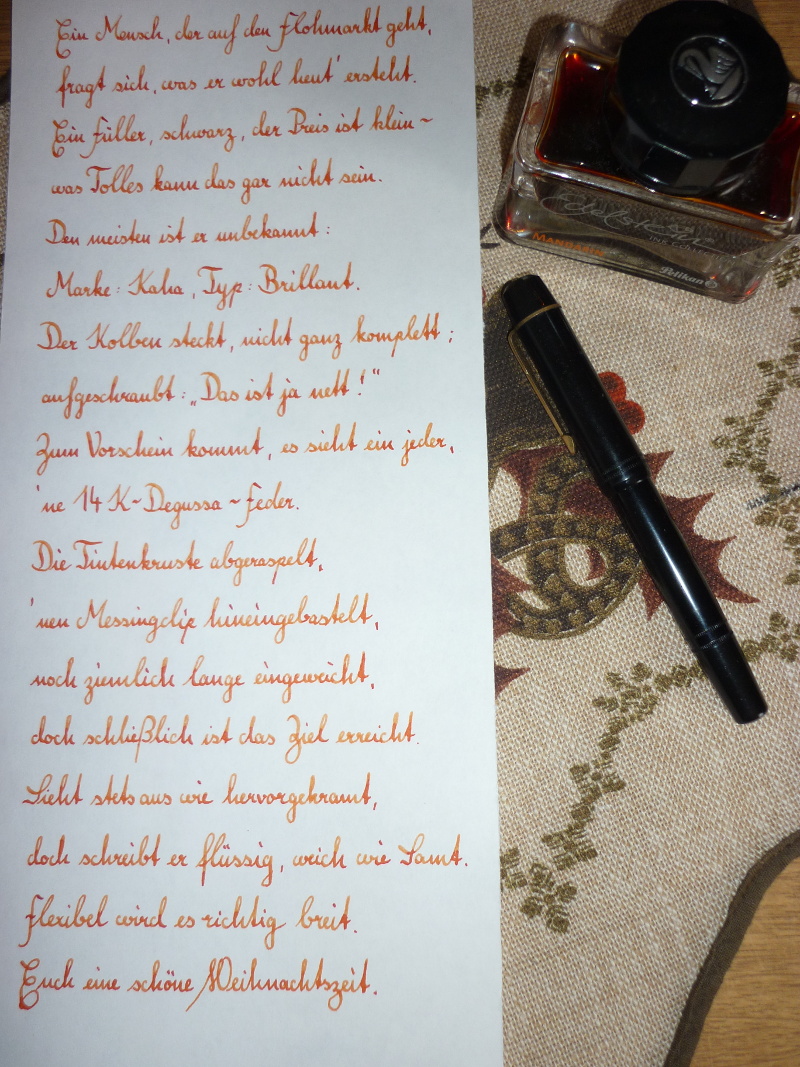 Ein Mensch, der auf den Flohmarkt geht,
fragt sich, was er wohl heut' ersteht.
Ein Füller, schwarz, der Preis ist klein ~
was Tolles kann das gar nicht sein.
Den meisten ist er unbekannt:
Marke: Kaha, Typ: Brillant.
Der Kolben steckt, nicht ganz komplett;
aufgeschraubt: „Das ist ja nett!“
Zum Vorschein kommt, es sieht ein jeder,
'ne 14 K~Degussa~Feder.
Die Tintenkruste abgeraspelt,
'nen Messingclip hineingebastelt,
noch ziemlich lange eingeweicht,
doch schließlich ist das Ziel erreicht.
Sieht stets aus wie hervorgekramt,
doch schreibt er flüssig, weich wie Samt.
Flexibel wird es richtig breit.
Euch eine schöne Weihnachtszeit.
Edelstein
INK COLLECTION
MANDARIN
Pelikan